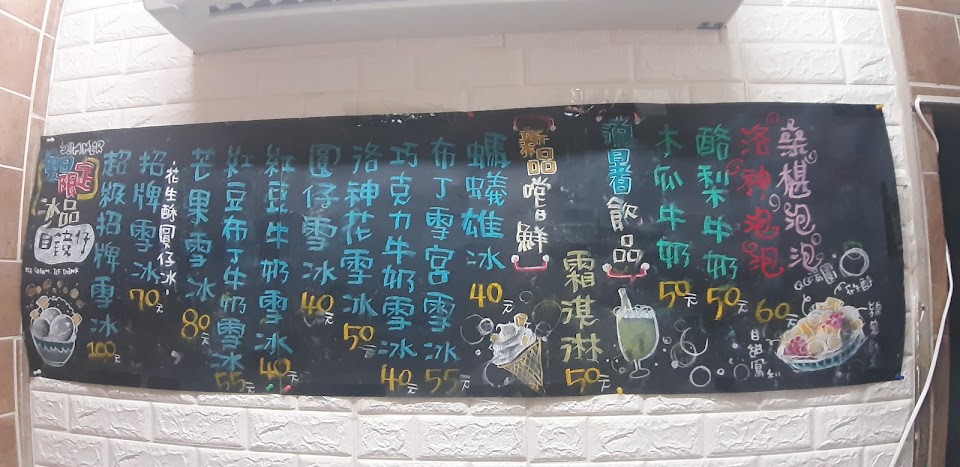 夏日
限定
冰品
目鏡仔
超級招牌雪冰
100元
招牌雪冰
70元
花生酥圓仔冰
芒果雪冰
80元
紅豆布丁牛奶雪冰
55元
紅豆牛奶雪冰
40元
圓仔雪冰
40元
洛神花雪冰
50元
巧克力牛奶雪冰
40元
布丁雪宮雪冰
55元
螞蟻雄冰
40元
新品嚐鮮
霜淇淋
50元
消暑飲品
木瓜牛奶
50元
酪梨牛奶
50元
洛神泡泡
桑椹泡泡
60元